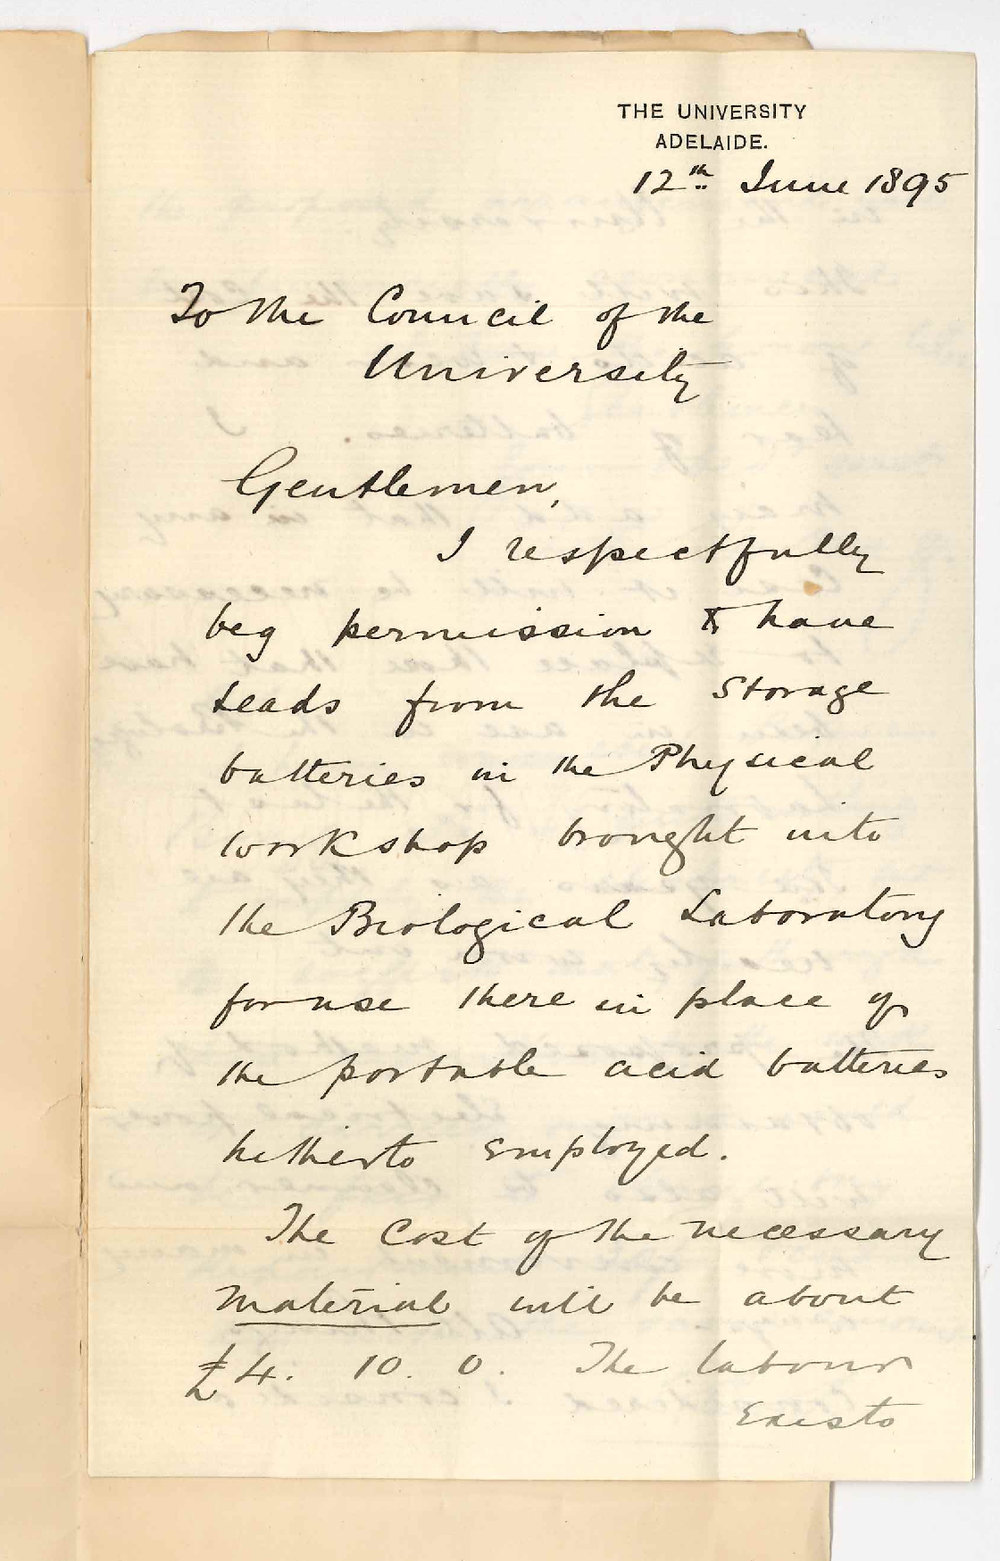 THE UNIVERSITY
ADELAIDE.
12th June 1895
To the Council of the
University
Gentlemen,
I respectfully
beg permission to have
leads from the storage
batteries in the Physical
workshop brought into
the Biological Laboratory
for use there in place of
the portable acid batteries
hitherto employed.
The cost of the necessary
material will be about
£4. 10. 0. The labour
Exists